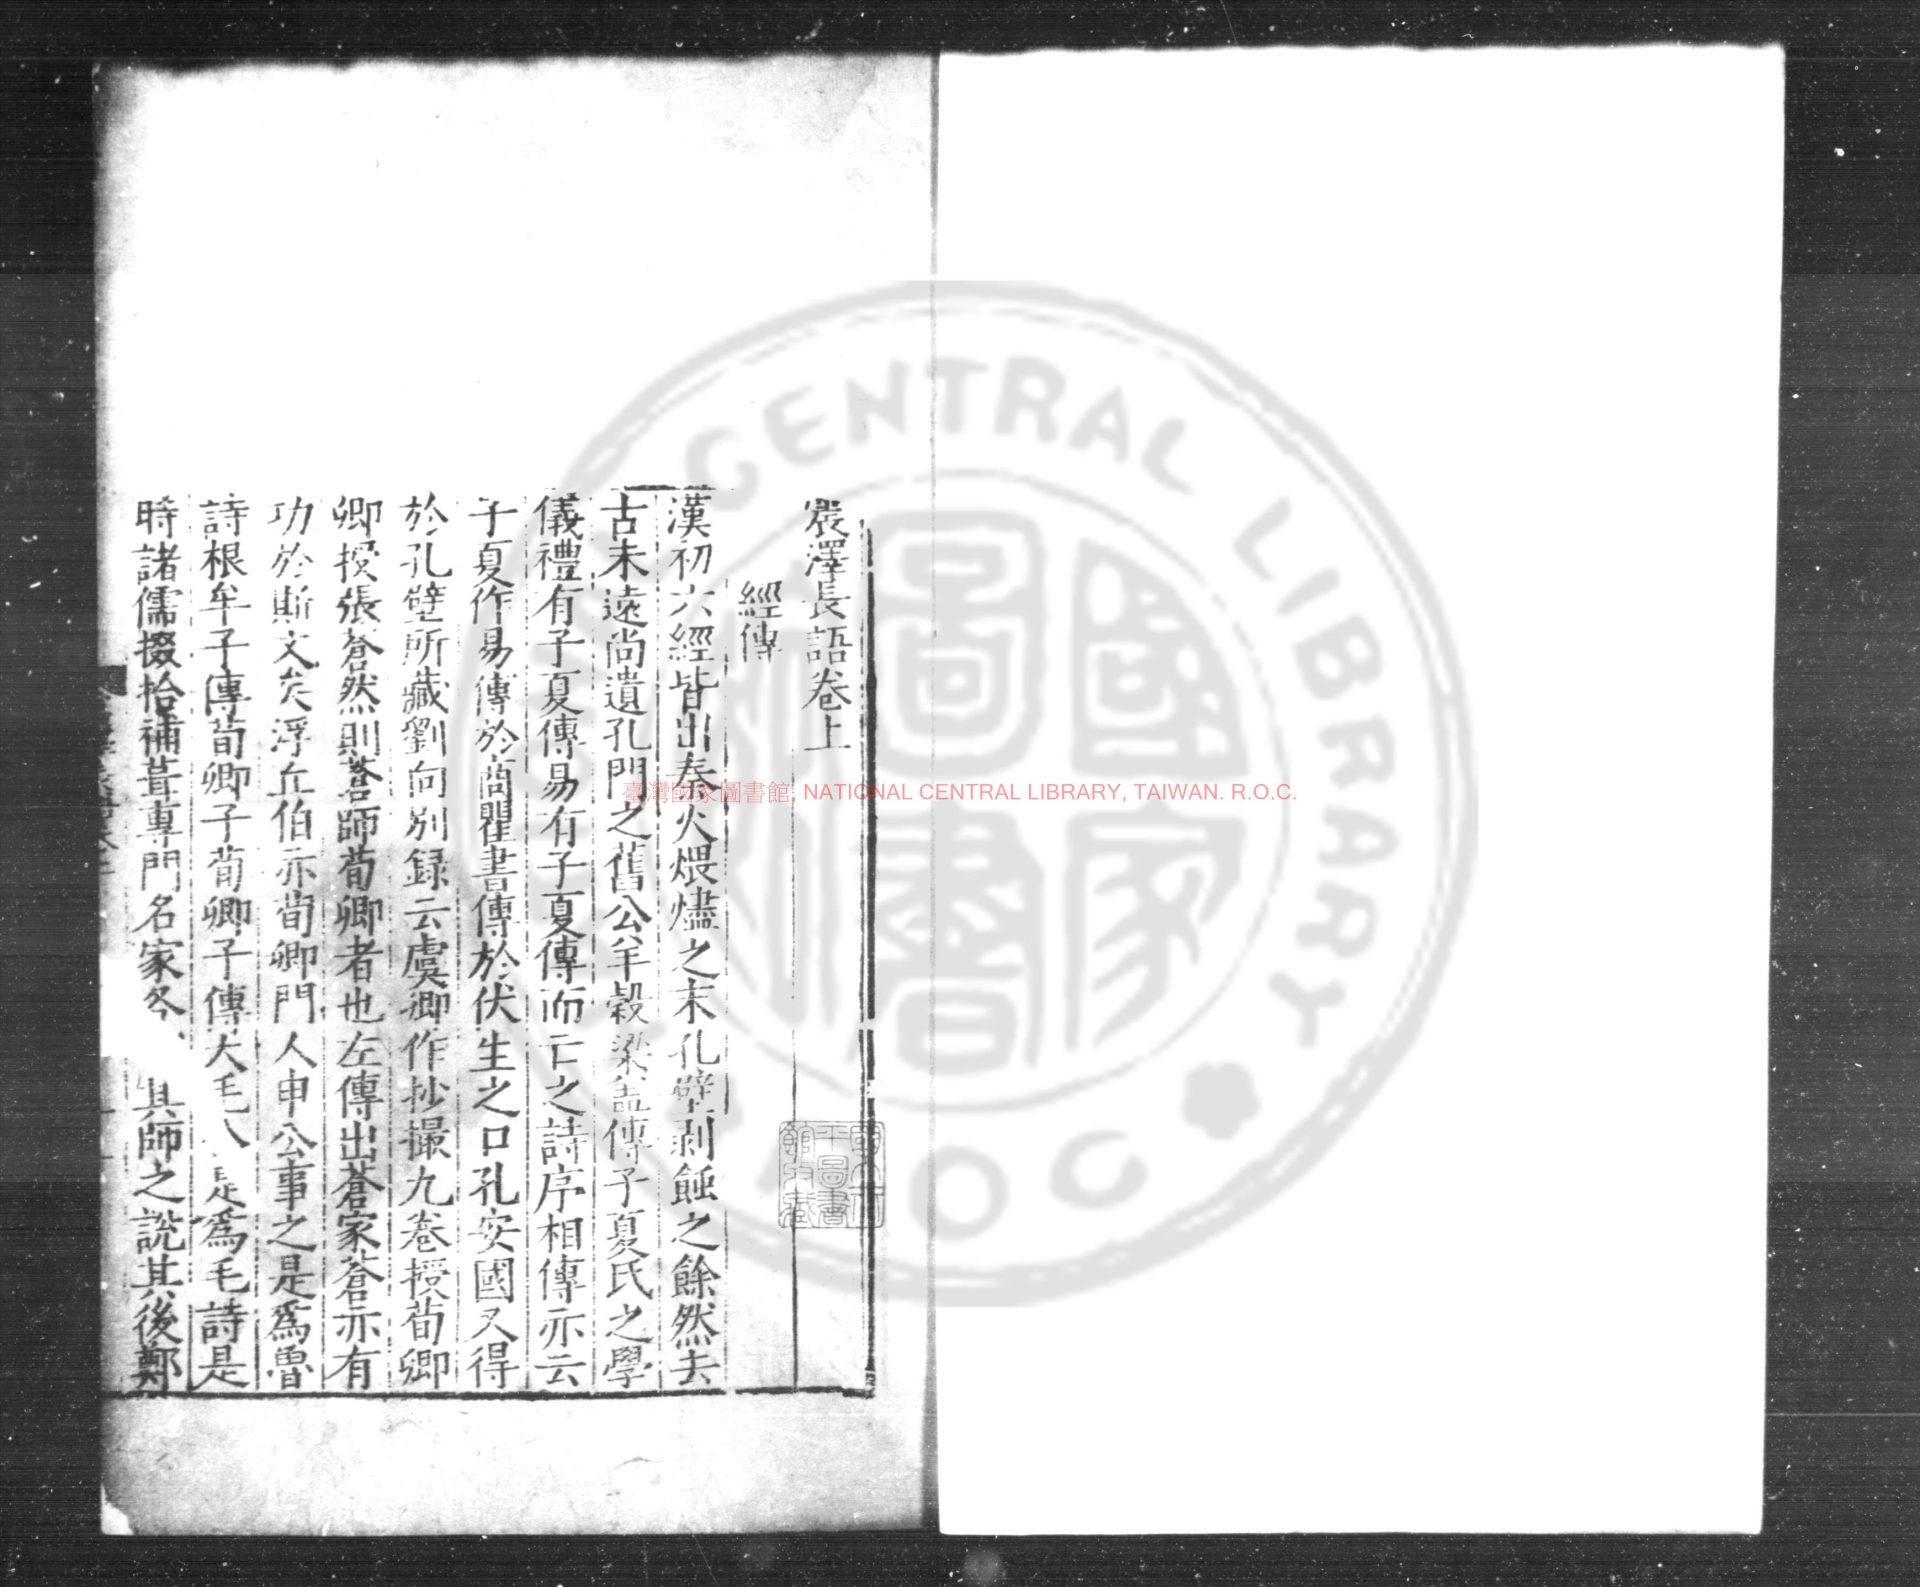 震澤長語卷上
經傳
漢初六經皆出秦火煨燼之末孔壁剥蝕之餘然去
古未遠尚遺孔門之舊公羊穀梁盖傳子夏氏之學
儀禮有子夏傳易有子夏傳而亡之詩序相傳亦云
子夏作易傳於商瞿書傳於伏生之口孔安國又得
於孔壁所藏劉向别録云虞卿作抄撮九卷授荀卿
卿授張蒼然則蒼師荀卿者也左傳出蒼家蒼亦有
功於斯文矣浮丘伯亦荀卿門人申公事之是爲魯
詩根牟子傳荀卿子荀卿子傳大毛公是爲毛詩是
時諸儒掇拾補葺專門名家各 其師之說其後鄭
臺灣國家圖書館, NATIONAL CENTRAL LIBRARY, TAIWAN. R.O.C.
CENTRAL LIBRARY
R.O.C.
國家圖書